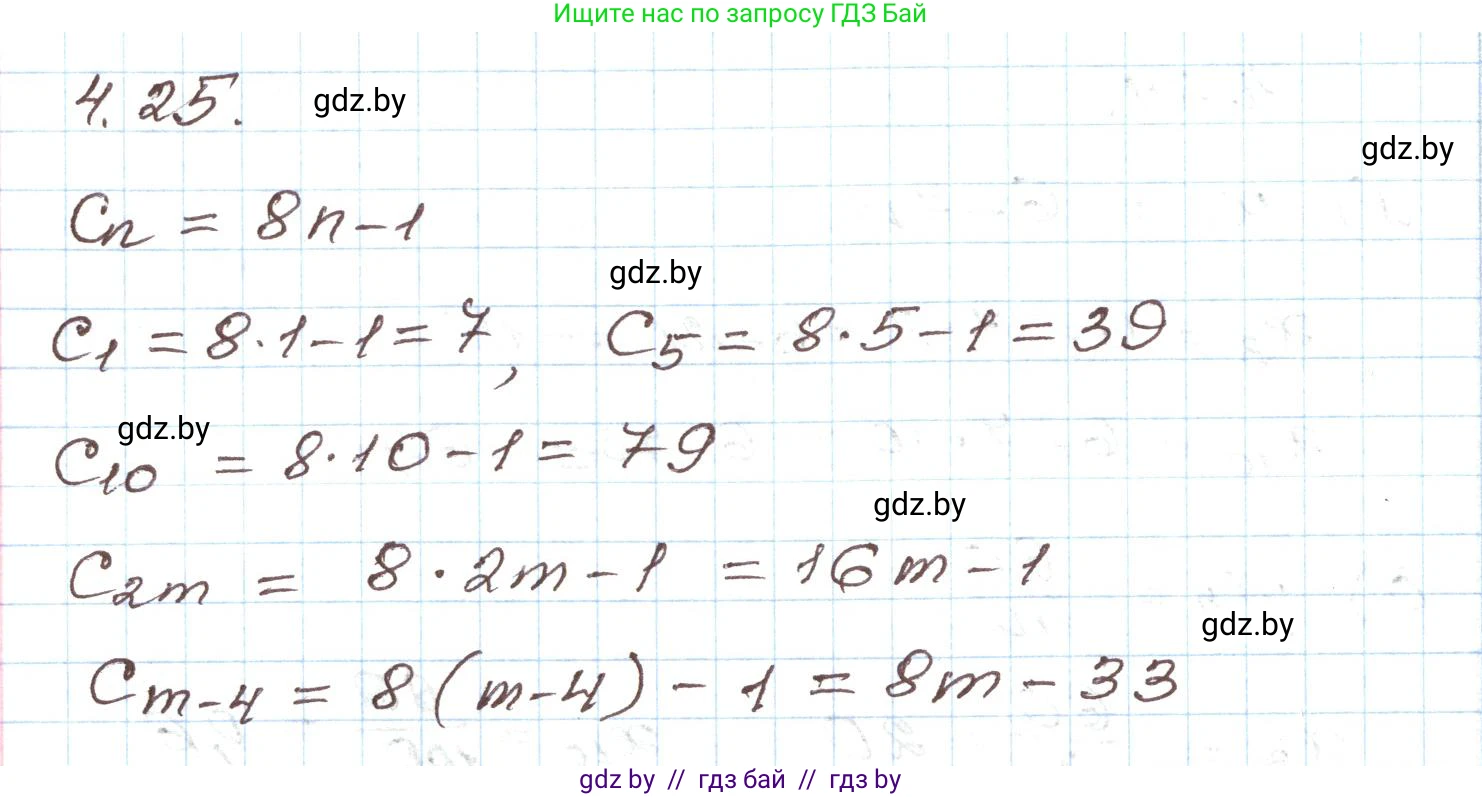 Ищите нас по запросу ГДЗ Бай
4.25. gdz.by
gdz.by
Cn = 8n-1
gdz.by
C1 = 8·1-1=7, C5 = 8·5-1=39
gdz.by
C10 = 8·10-1= 79
gdz.by
C2m = 8·2m-1 = 16m-1
gdz.by
Cm-4 = 8(m-4)-1 = 8m-33
gdz by // гдз бай // гдз by